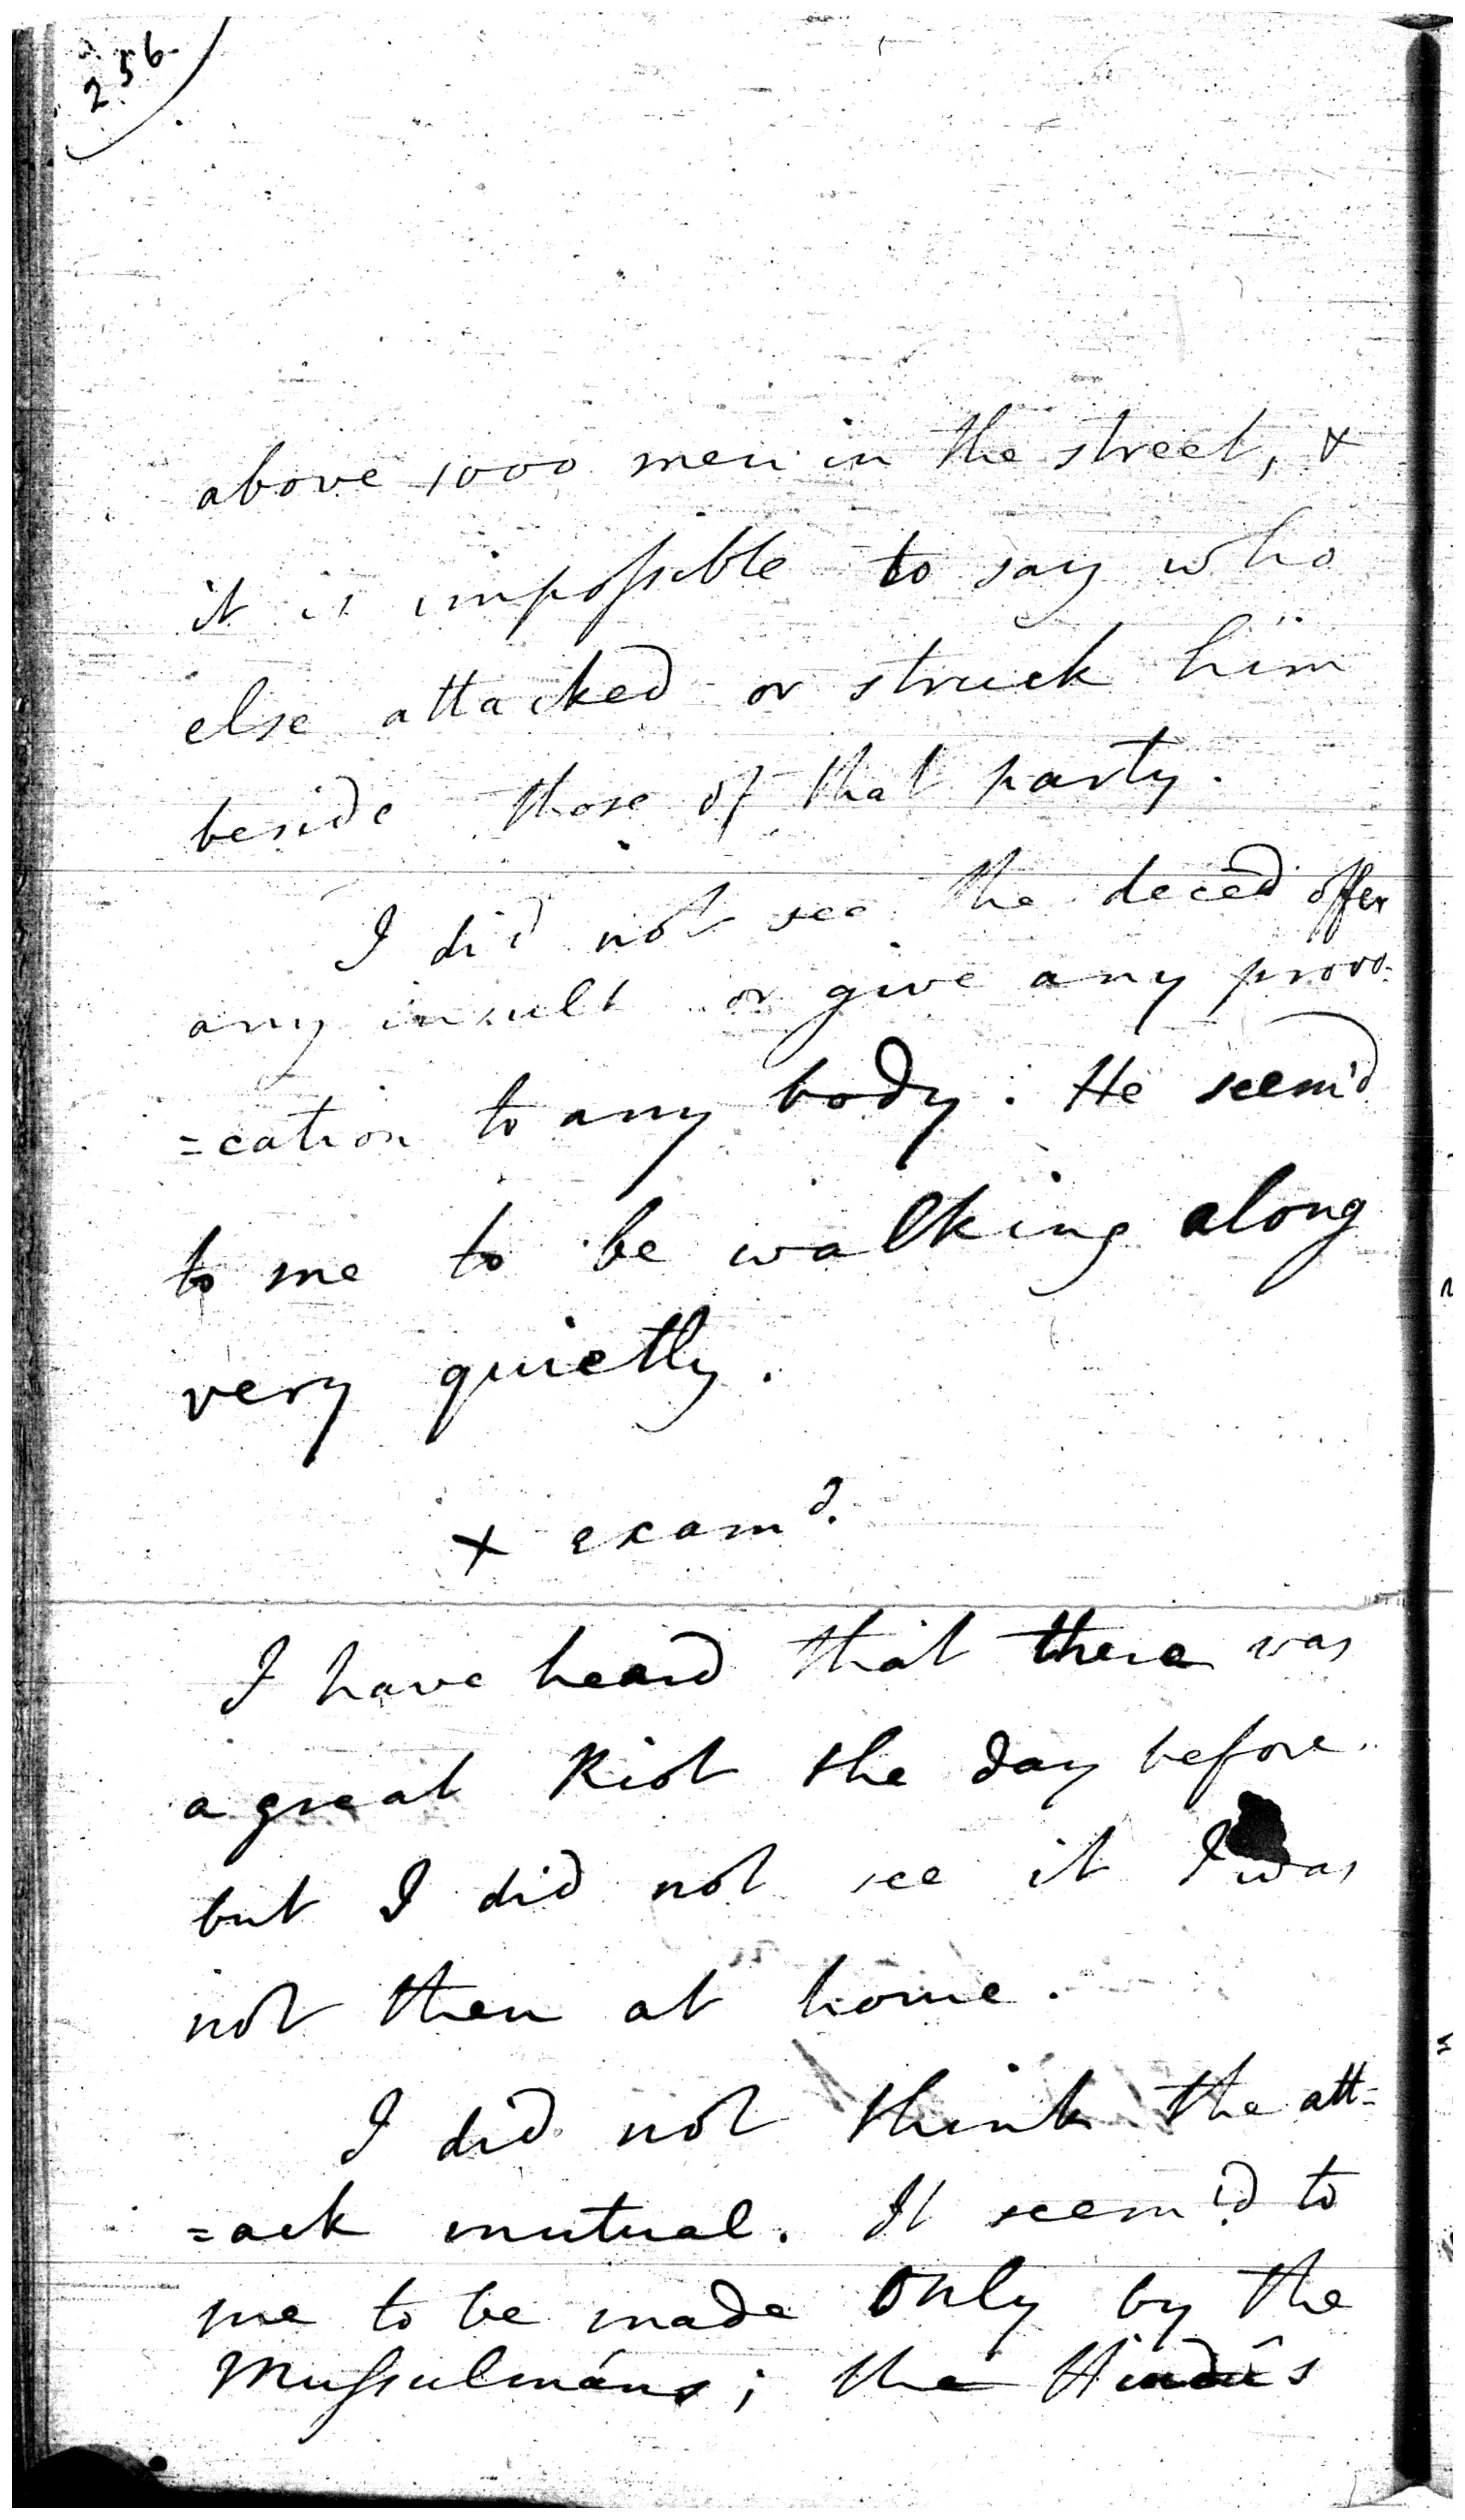 256.
above 1000 men in the street, &
it is impossible to say who
else attacked or struck him
beside those of that party.
I did not see the deced offer
any insult or give any provo-
=cation to any body. He seem'd
to me to be walking along
very quietly.
x examd.
I have heard that there was
a great Riot the day before.
but I did not see it I was
not then at home.
I did not think the att=
=ack mutual. It seem'd to
me to be made only by the
Mussulmáns; the Hindûs